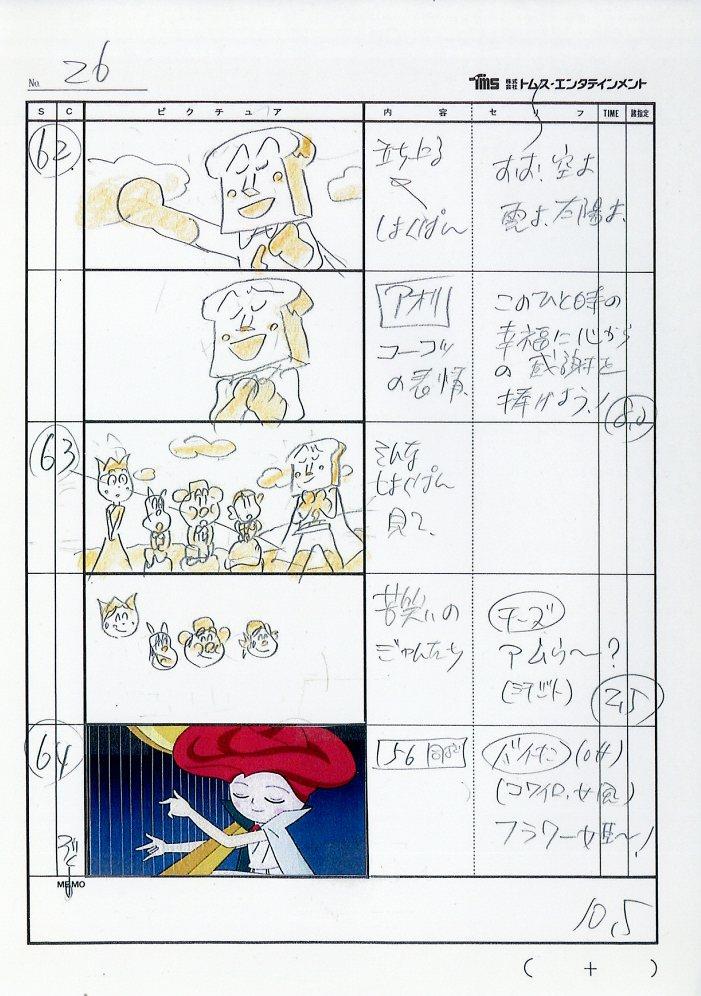 No. 26
TMS 株式会社 トムス・エンタテインメント
S C ピクチュア 内容 セリフ TIME 諸指定
62
立ち上る
しょくぱん
おお！空よ
雲よ、太陽よ、
アオリ
コーコツ
の表情
このひと時の
幸福に心から
の感謝を
捧げよう！
8,0
63
そんな
しょくぱん
見て、
苦笑いの
チーズ
アムゥ〜？
2,5
64
56 同ポ
バイキン (off)
(コワイロ、女風)
フラワー姫〜！
MEMO
10,5
( + )